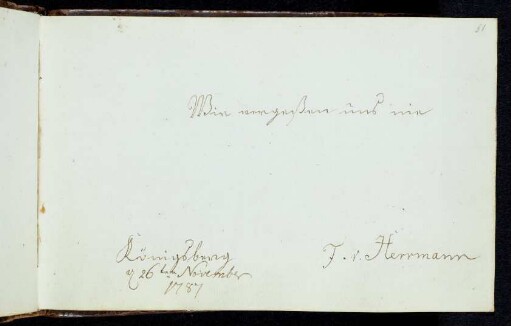 81
Wir vergeßen uns nie
Königsberg
d 26ten November
1787
J. v. Herrmann